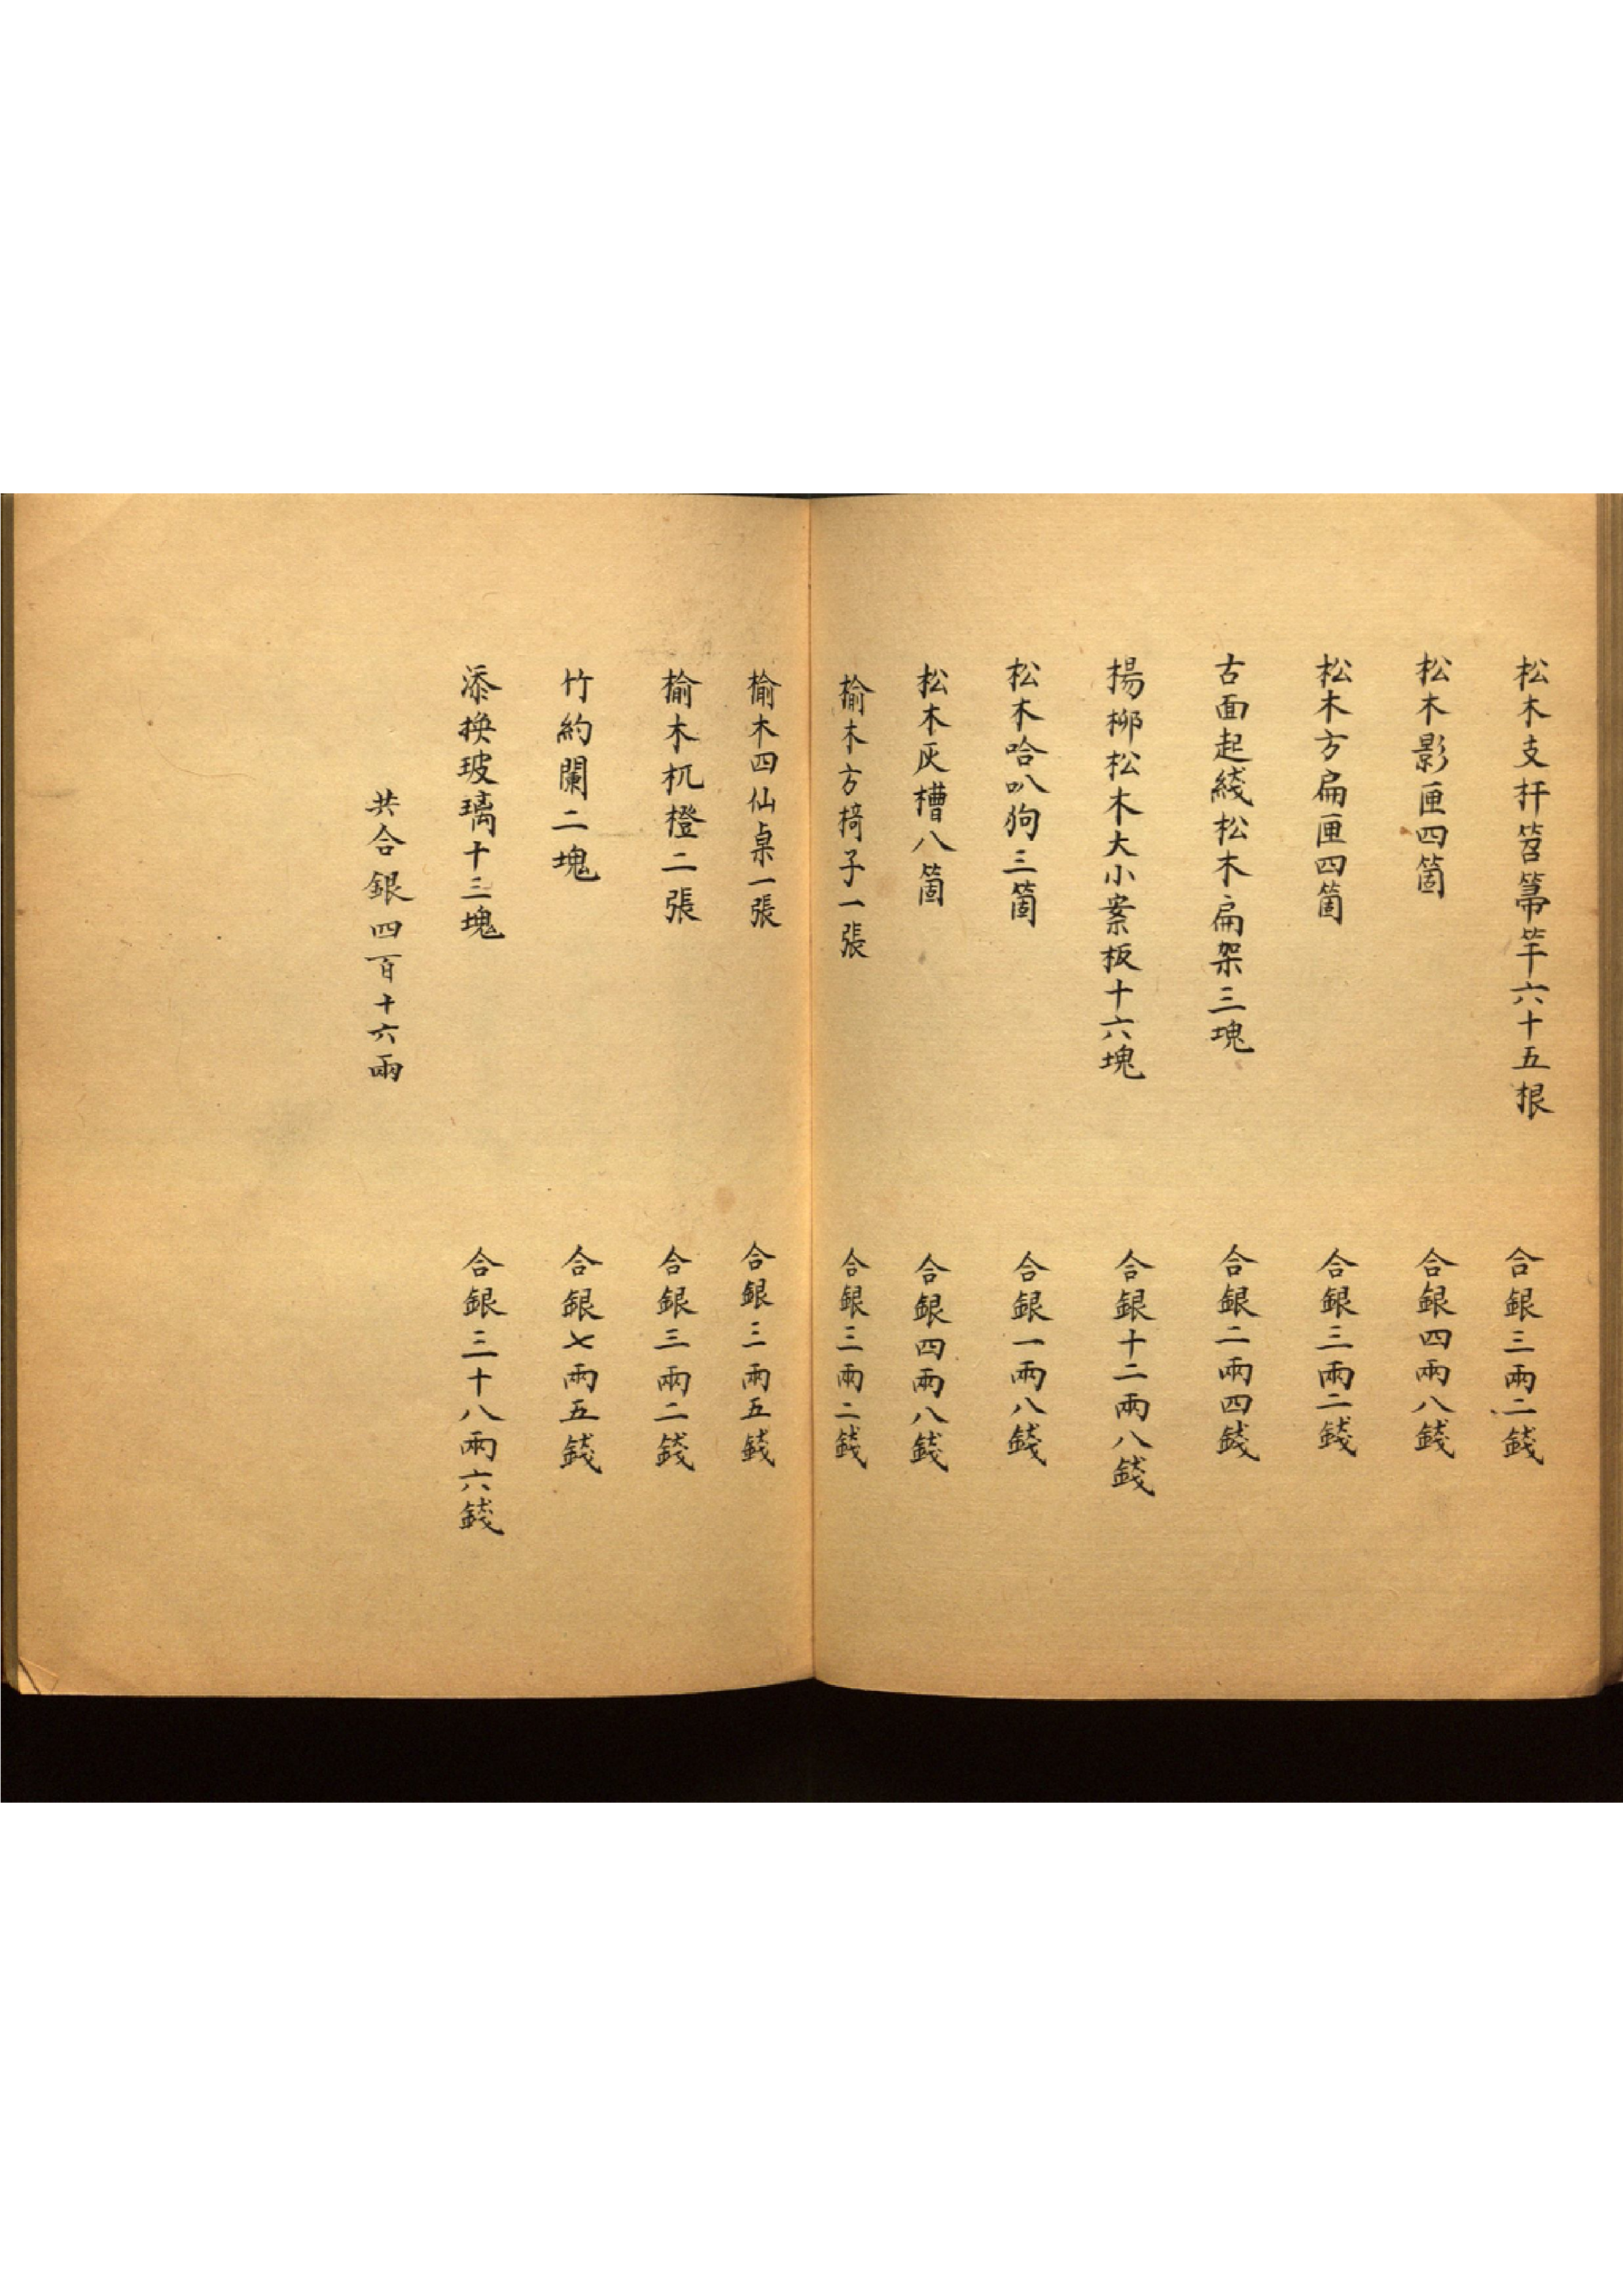 松木支杆笤箒竿六十五根　合銀三兩二錢
松木影匣四箇　合銀四兩八錢
松木方扁匣四箇　合銀三兩二錢
古面起綫松木扁架三塊　合銀二兩四錢
楊柳松木大小案板十六塊　合銀十二兩八錢
松木哈叭狗三箇　合銀一兩八錢
松木灰槽八箇　合銀四兩八錢
榆木方椅子一張　合銀三兩二錢
榆木四仙桌一張　合銀三兩五錢
榆木杌橙二張　合銀三兩二錢
竹約闌二塊　合銀七兩五錢
添換玻璃十三塊　合銀三十八兩六錢
共合銀四百十六兩